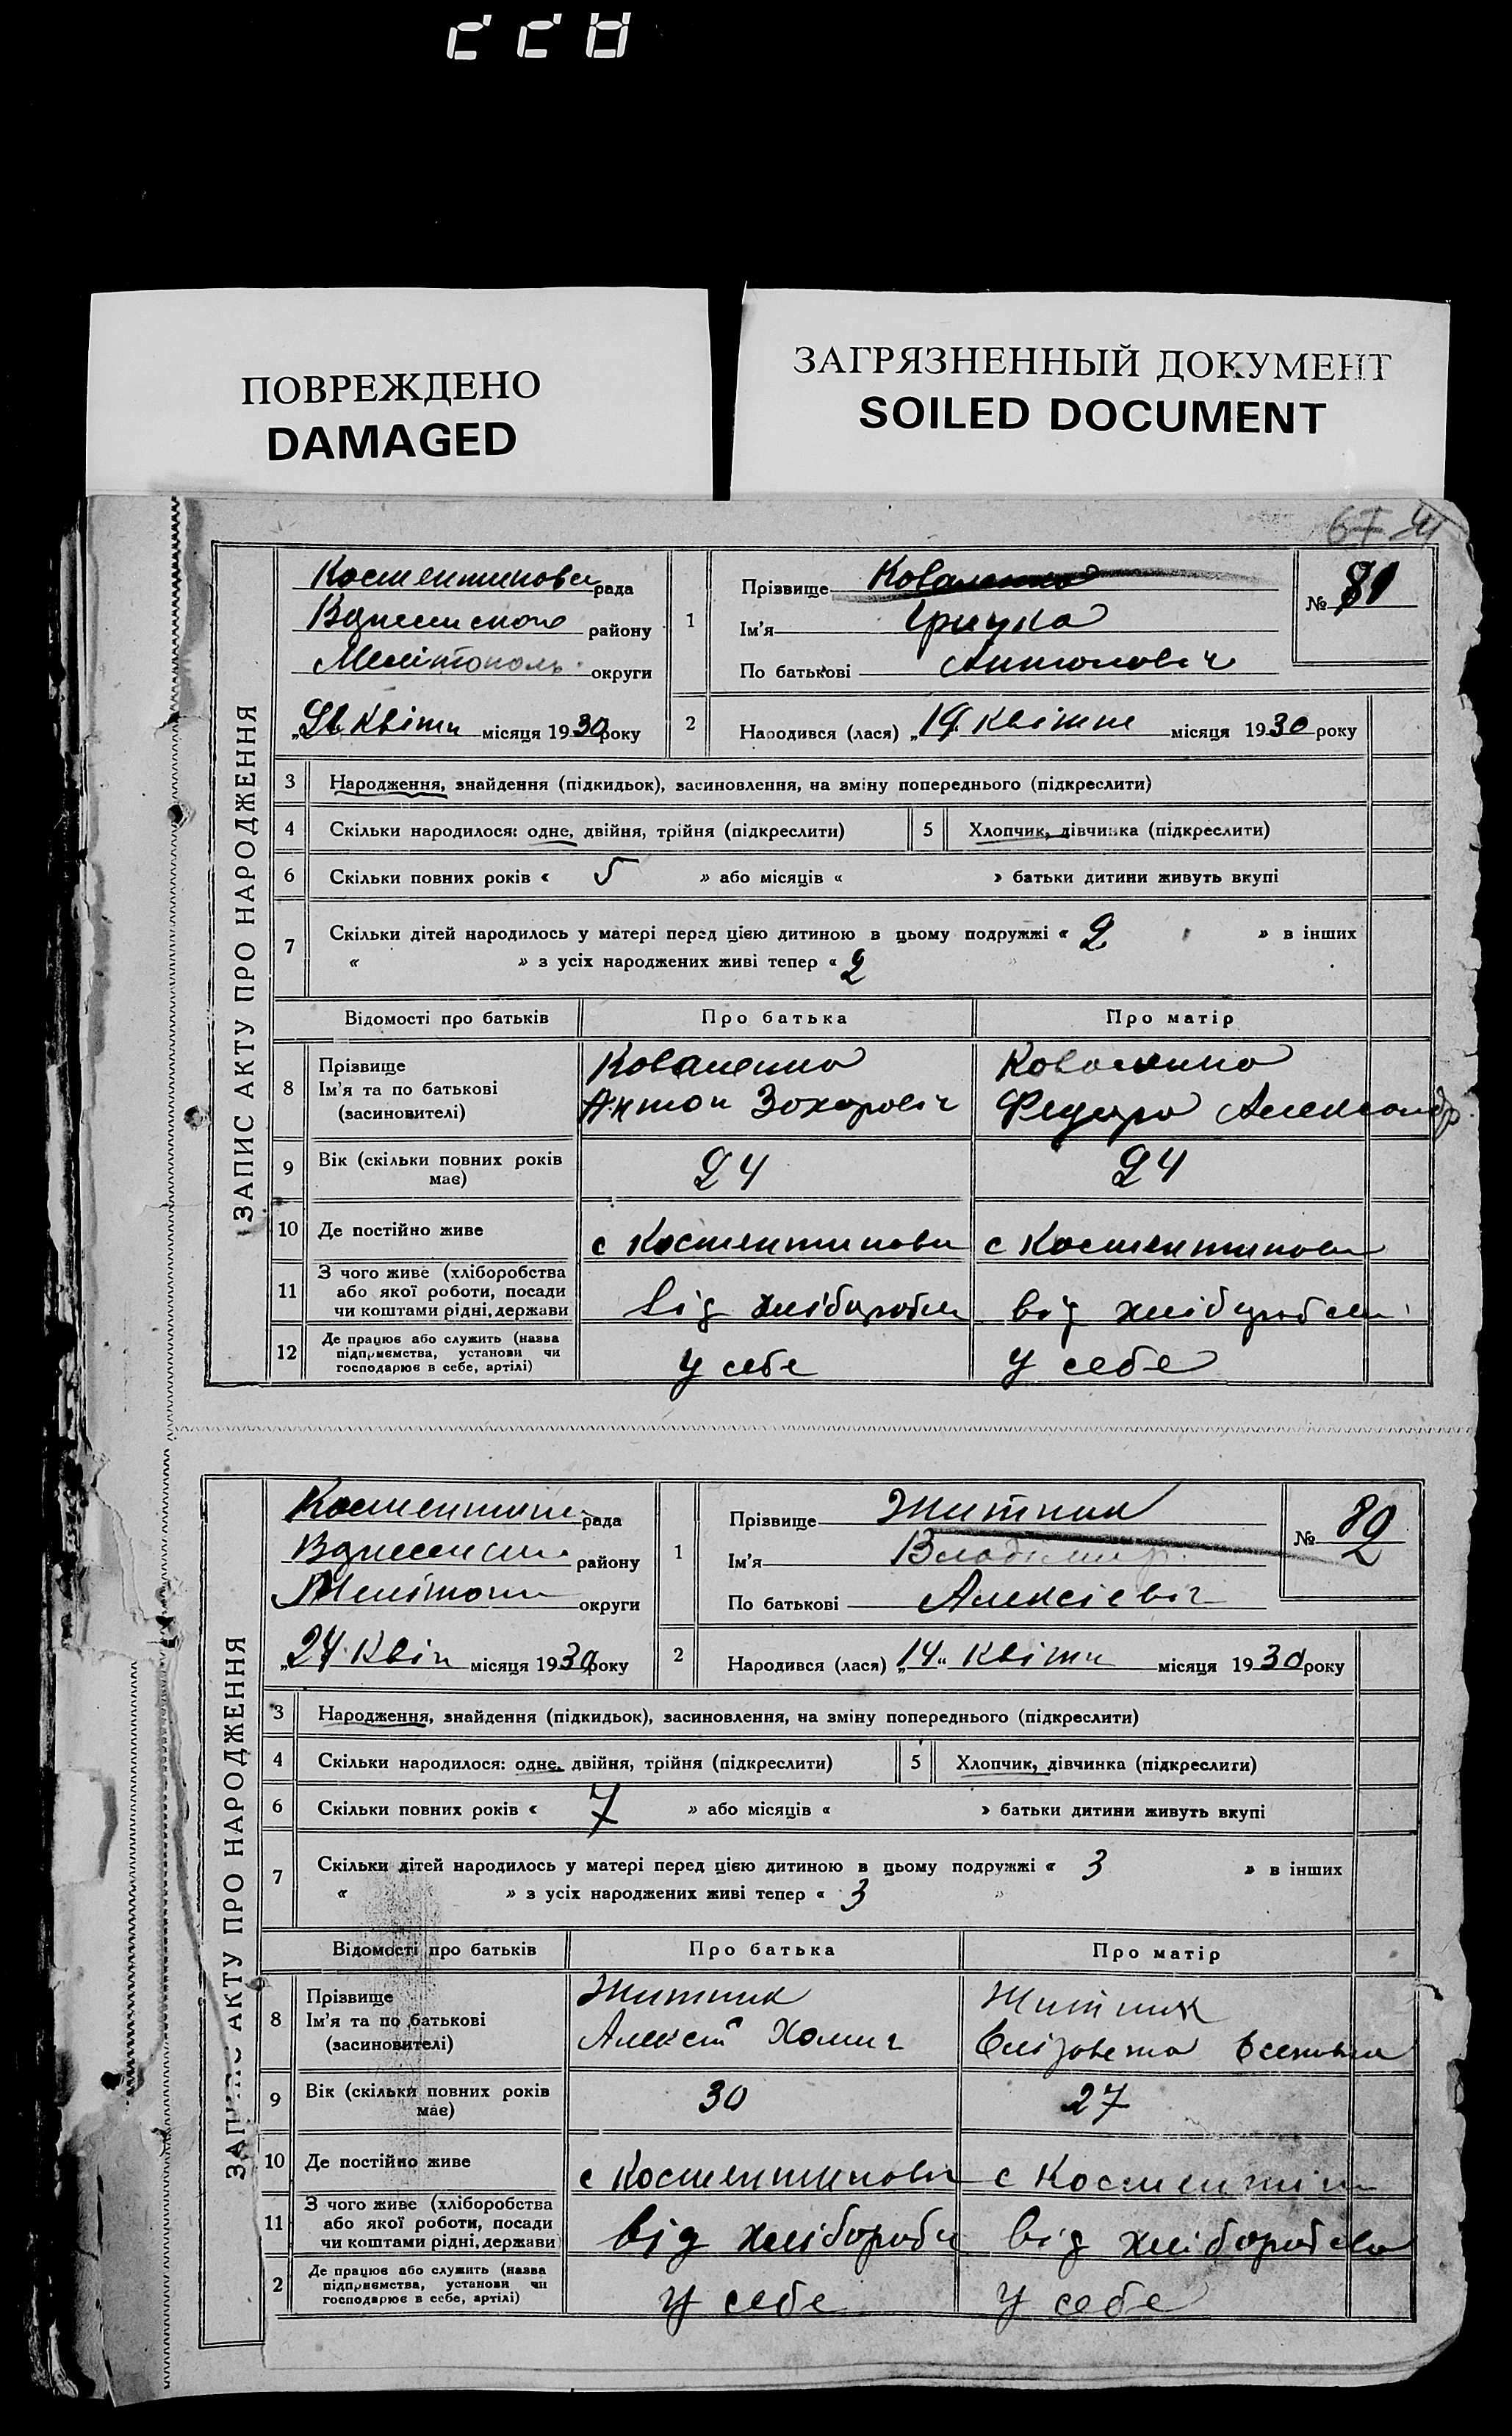 ПОВРЕЖДЕНО
DAMAGED
ЗАГРЯЗНЕННЫЙ ДОКУМЕНТ
SOILED DOCUMENT
67
ЗАПИС АКТУ ПРО НАРОДЖЕННЯ
Костентинови рада
району
Мелітополь округи
Квітн місяця 1930 року
1
Прізвище Коваленко
Ім'я Грицко
По батькові Антоновіч
№ 81
2 Народився (лася) „ Квітне місяця 1930 року
3 Народження, знайдення (підкидьок), засиновлення, на зміну попереднього (підкреслити)
4 Скільки народилося: одне, двійня, трійня (підкреслити) 5 Хлопчик, дівчинка (підкреслити)
6 Скільки повних років « 5 » або місяців « » батьки дитини живуть вкупі
7 Скільки дітей народилось у матері перед цією дитиною в цьому подружжі « 2 » в інших
« » з усіх народжених живі тепер « 2 »
Відомості про батьків Про батька Про матір
8 Прізвище
Ім'я та по батькові
(засиновителі)
Коваленко
Антон Захаровіч
Коваленко
Федора Александр.
9 Вік (скільки повних років
має)
24 24
10 Де постійно живе с Костентинови с Костентинови
11 З чого живе (хліборобства
або якої роботи, посади
чи коштами рідні, держави
від хлібороби від хліборобсти
12 Де працює або служить (назва
підприємства, установи чи
господарює в себе, артілі)
у себе у себе
ЗАПИС АКТУ ПРО НАРОДЖЕННЯ
рада
району
округи
„24 Квітн місяця 1930 року
1
Прізвище Житник
Ім'я Владимир
По батькові Алексієвіч
№ 82
2 Народився (лася) „14„ Квітн місяця 1930 року
3 Народження, знайдення (підкидьок), засиновлення, на зміну попереднього (підкреслити)
4 Скільки народилося: одне, двійня, трійня (підкреслити) 5 Хлопчик, дівчинка (підкреслити)
6 Скільки повних років « 7 » або місяців « » батьки дитини живуть вкупі
7 Скільки дітей народилось у матері перед цією дитиною в цьому подружжі « 3 » в інших
« » з усіх народжених живі тепер « 3 »
Відомості про батьків Про батька Про матір
8 Прізвище
Ім'я та по батькові
(засиновителі)
Житник
Алексій Хомич
Житник
Єлізовета
9 Вік (скільки повних років
має)
30 27
10 Де постійно живе с Костентинови с Костентіни
11 З чого живе (хліборобства
або якої роботи, посади
чи коштами рідні, держави
від хлібороби від хліборобства
2 Де працює або служить (назва
підприємства, установи чи
господарює в себе, артілі)
у себе у себе